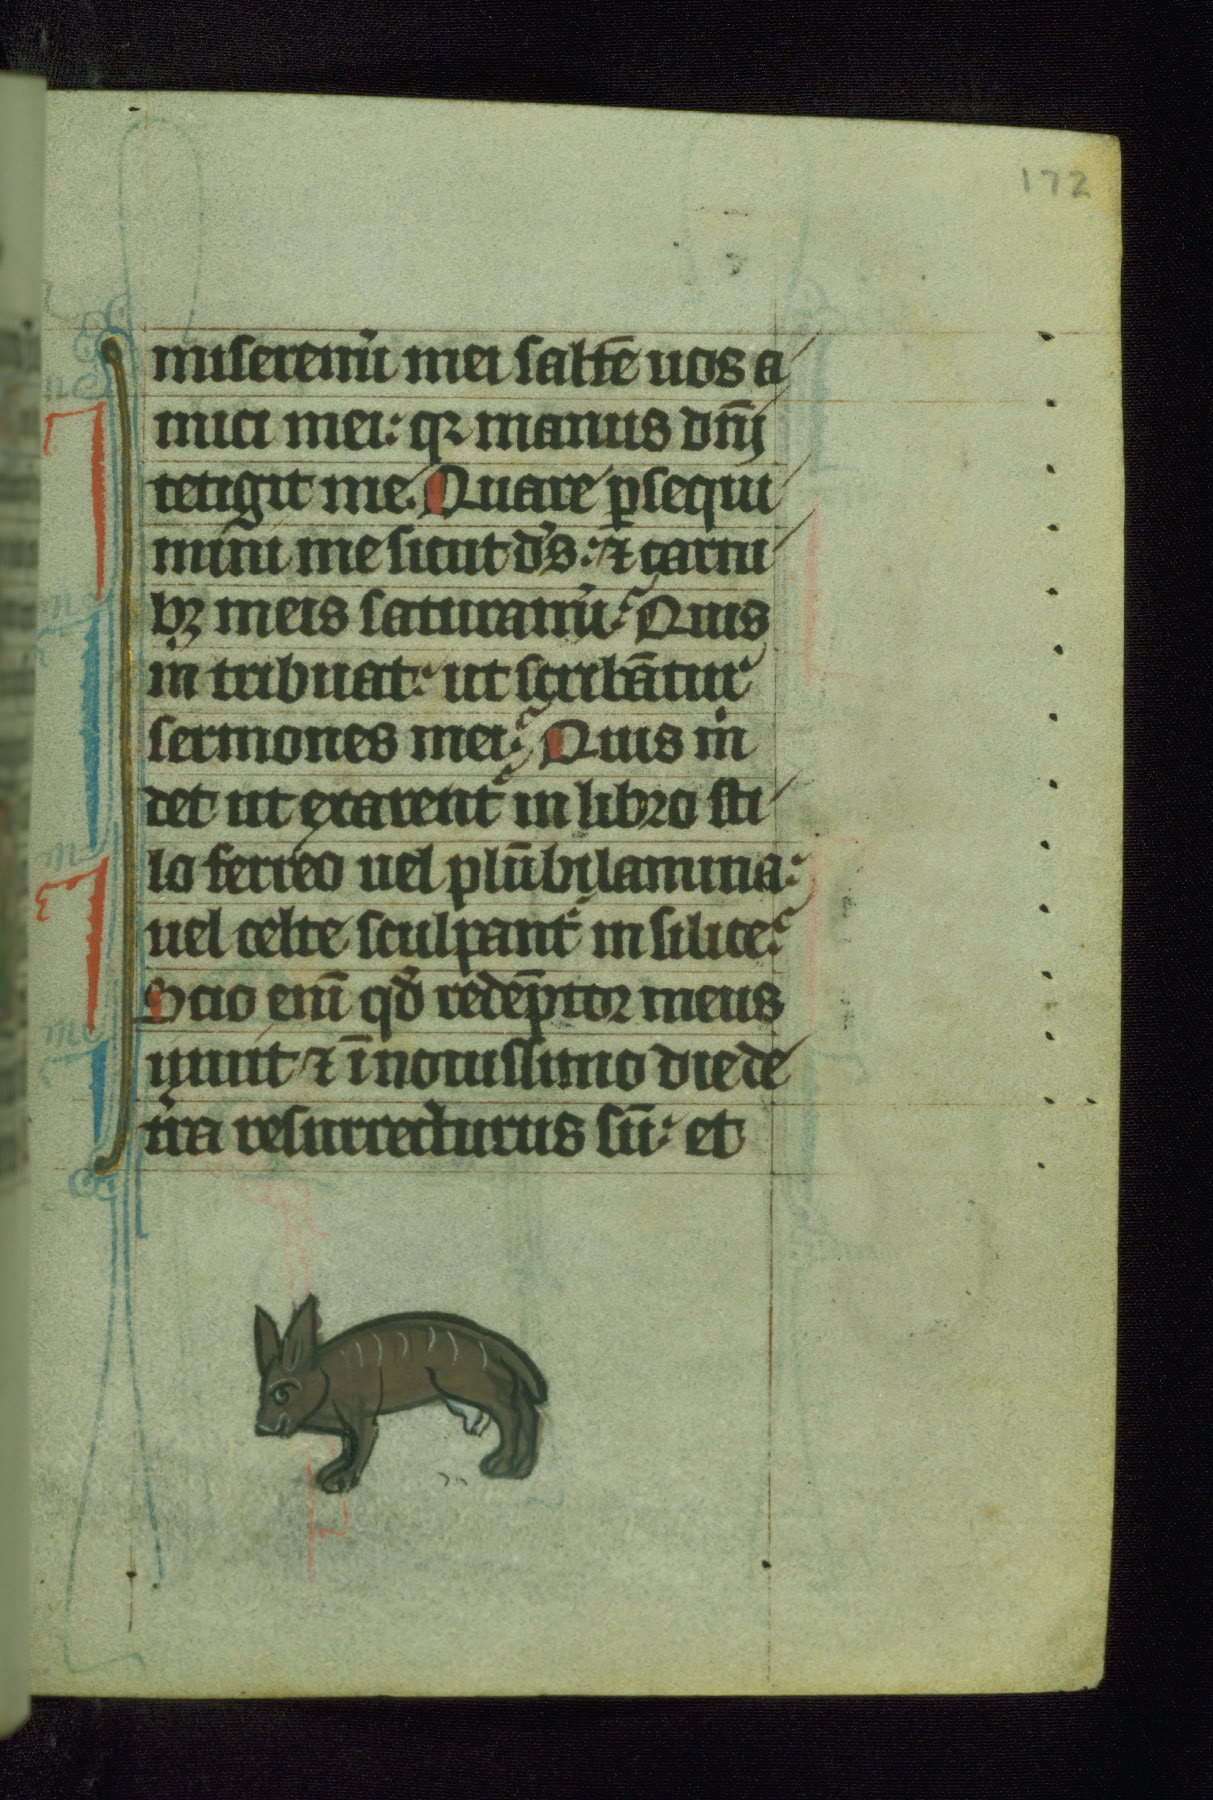 172
miseremĩ mei saltẽ uos a
mici mei: qꝛ manus dñi
tetigit me. Quare ꝑsequi
mini me sicut ds̃: ⁊ carni
bꝫ meis saturamĩ. Quis
m̃ tribuat: ut scribãtur
sermones mei; Quis m̃
det ut exarent᷑ in libro sti
lo ferreo uel plũbi lamina:
uel celte sculpant᷑ in silice;
Scio enĩ qđ redẽptor meus
uiuit ⁊ ĩ nouissimo die de
t̃ra resurrecturus sũ: et